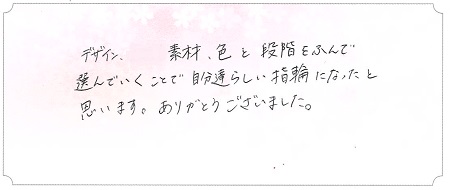 デザイン、 素材、色と段階をふんで
選んでいくことで自分達らしい指輪になったと
思います。ありがとうございました。